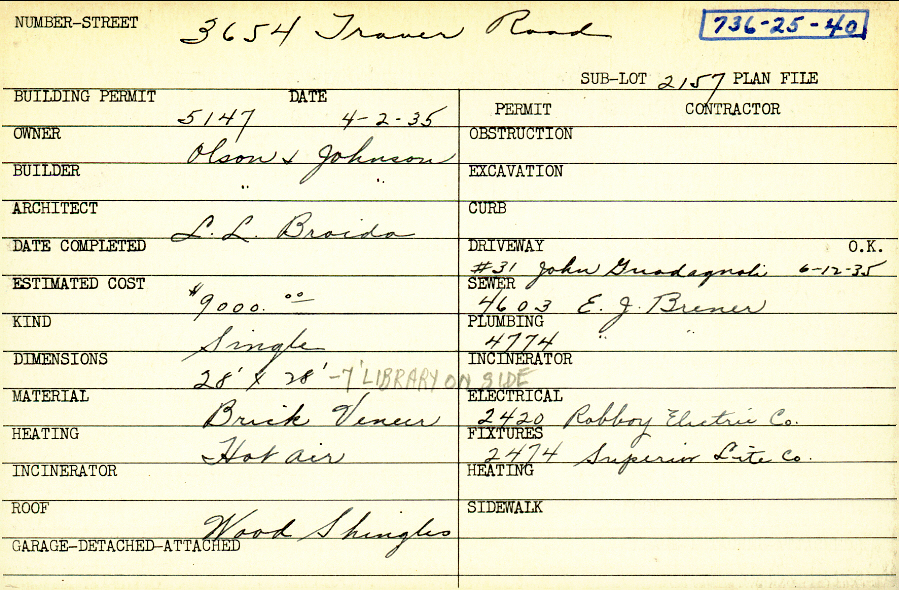 NUMBER-STREET 3654 Traver Road 736-25-40
SUB-LOT 2157 PLAN FILE
BUILDING PERMIT DATE
5147 4-2-35
PERMIT CONTRACTOR
OWNER
Olson & Johnson
BUILDER
" "
ARCHITECT
L. L. Braida
DATE COMPLETED
ESTIMATED COST
$9000.00
KIND
Single
DIMENSIONS
28' X 28' - 7' LIBRARY ON SIDE
MATERIAL
Brick Veneer
HEATING
Hot air
INCINERATOR
ROOF
Wood Shingles
GARAGE-DETACHED-ATTACHED
OBSTRUCTION
EXCAVATION
CURB
DRIVEWAY O.K.
#31 John Guadagnoli 6-12-35
SEWER
4603 E. J. Brener
PLUMBING
4774 " "
INCINERATOR
ELECTRICAL
2420 Robboy Electric Co.
FIXTURES
2474 Superior Lite Co.
HEATING
SIDEWALK